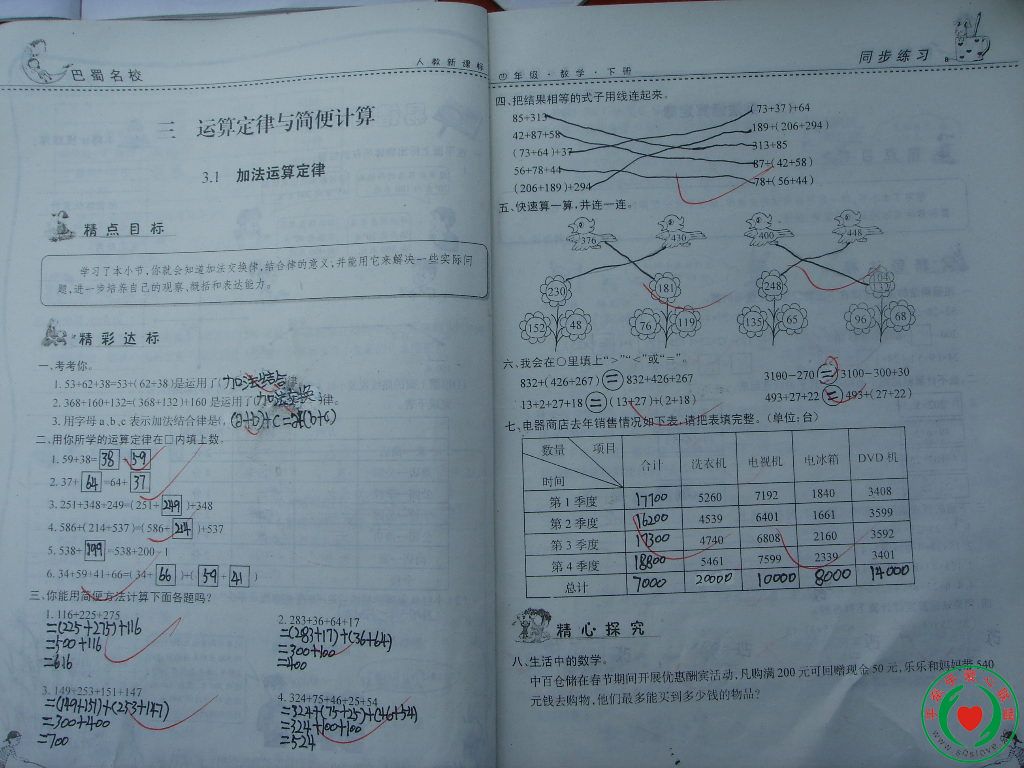 巴蜀名校
人教新课标
三 运算定律与简便计算
3.1 加法运算定律
精点目标
学习了本小节,你就会知道加法交换律,结合律的意义,并能用它来解决一些实际问
题,进一步培养自己的观察,概括和表达能力。
精彩达标
一、考考你。
1. 53+62+38=53+(62+38)是运用了(加法结合律
2. 368+160+132=(368+132)+160是运用了(加法交换 律。
3. 用字母a、b、c表示加法结合律是(, (a+b)+c=a+(b+c)
二、用你所学的运算定律在□内填上数。
1. 59+38=38+59
2. 37+64=64+37
3. 251+348+249=(251+249)+348
4. 586+(214+537)=(586+214)+537
5. 538+199=538+200-1
6. 34+59+41+66=(34+66)+(59+41)
三、你能用简便方法计算下面各题吗?
1. 116+225+275
=(225+275)+116
=500+116
=616
2. 283+36+64+17
=(283+17)+(36+64)
=300+100
=400
3. 149+253+151+147
=(149+151)+(253+147)
=300+400
=700
4. 324+75+46+25+54
=324+(75+25)+(46+54)
=324+100+100
=524
四年级·数学·下册
同步练习
四、把结果相等的式子用线连起来。
85+313 (73+37)+64
42+87+58 189+(206+294)
(73+64)+37 313+85
56+78+44 87+(42+58)
(206+189)+294 78+(56+44)
五、快速算一算,并连一连。
376 436 400 448
230 181 248
152 48 76 119 135 65 96 68
六、我会在○里填上“>”“<”或“=”。
832+(426+267)=832+426+267 3100-270=3100-300+30
13+2+27+18=(13+27)+(2+18) 493+27+22=495+(27+22)
七、电器商店去年销售情况如下表,请把表填完整。(单位:台)
数量 项目 时间 合计 洗衣机 电视机 电冰箱 DVD机
第1季度 17700 5260 7192 1840 3408
第2季度 16200 4539 6401 1661 3599
第3季度 17300 4740 6808 2160 3592
第4季度 18800 5461 7599 2339 3401
总计 7000 20000 10000 8000 14000
精心探究
八、生活中的数学。
中百仓储在春节期间开展优惠酬宾活动,凡购满200元可回赠现金50元,乐乐和妈妈带540
元钱去购物,他们最多能买到多少钱的物品?